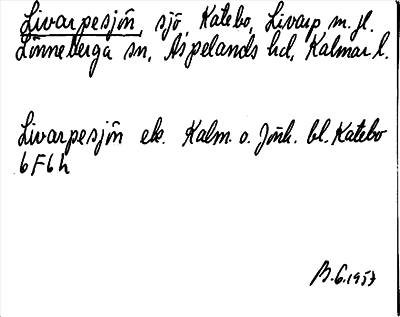 Livarpesjön, sjö, Katebo, Livarp m.fl.
Lönneberga sn, Aspelands hd, Kalmar l.
Livarpesjön ek. Kalm. o. Jönk. bl. Katebo
6F6h
B.G.1957